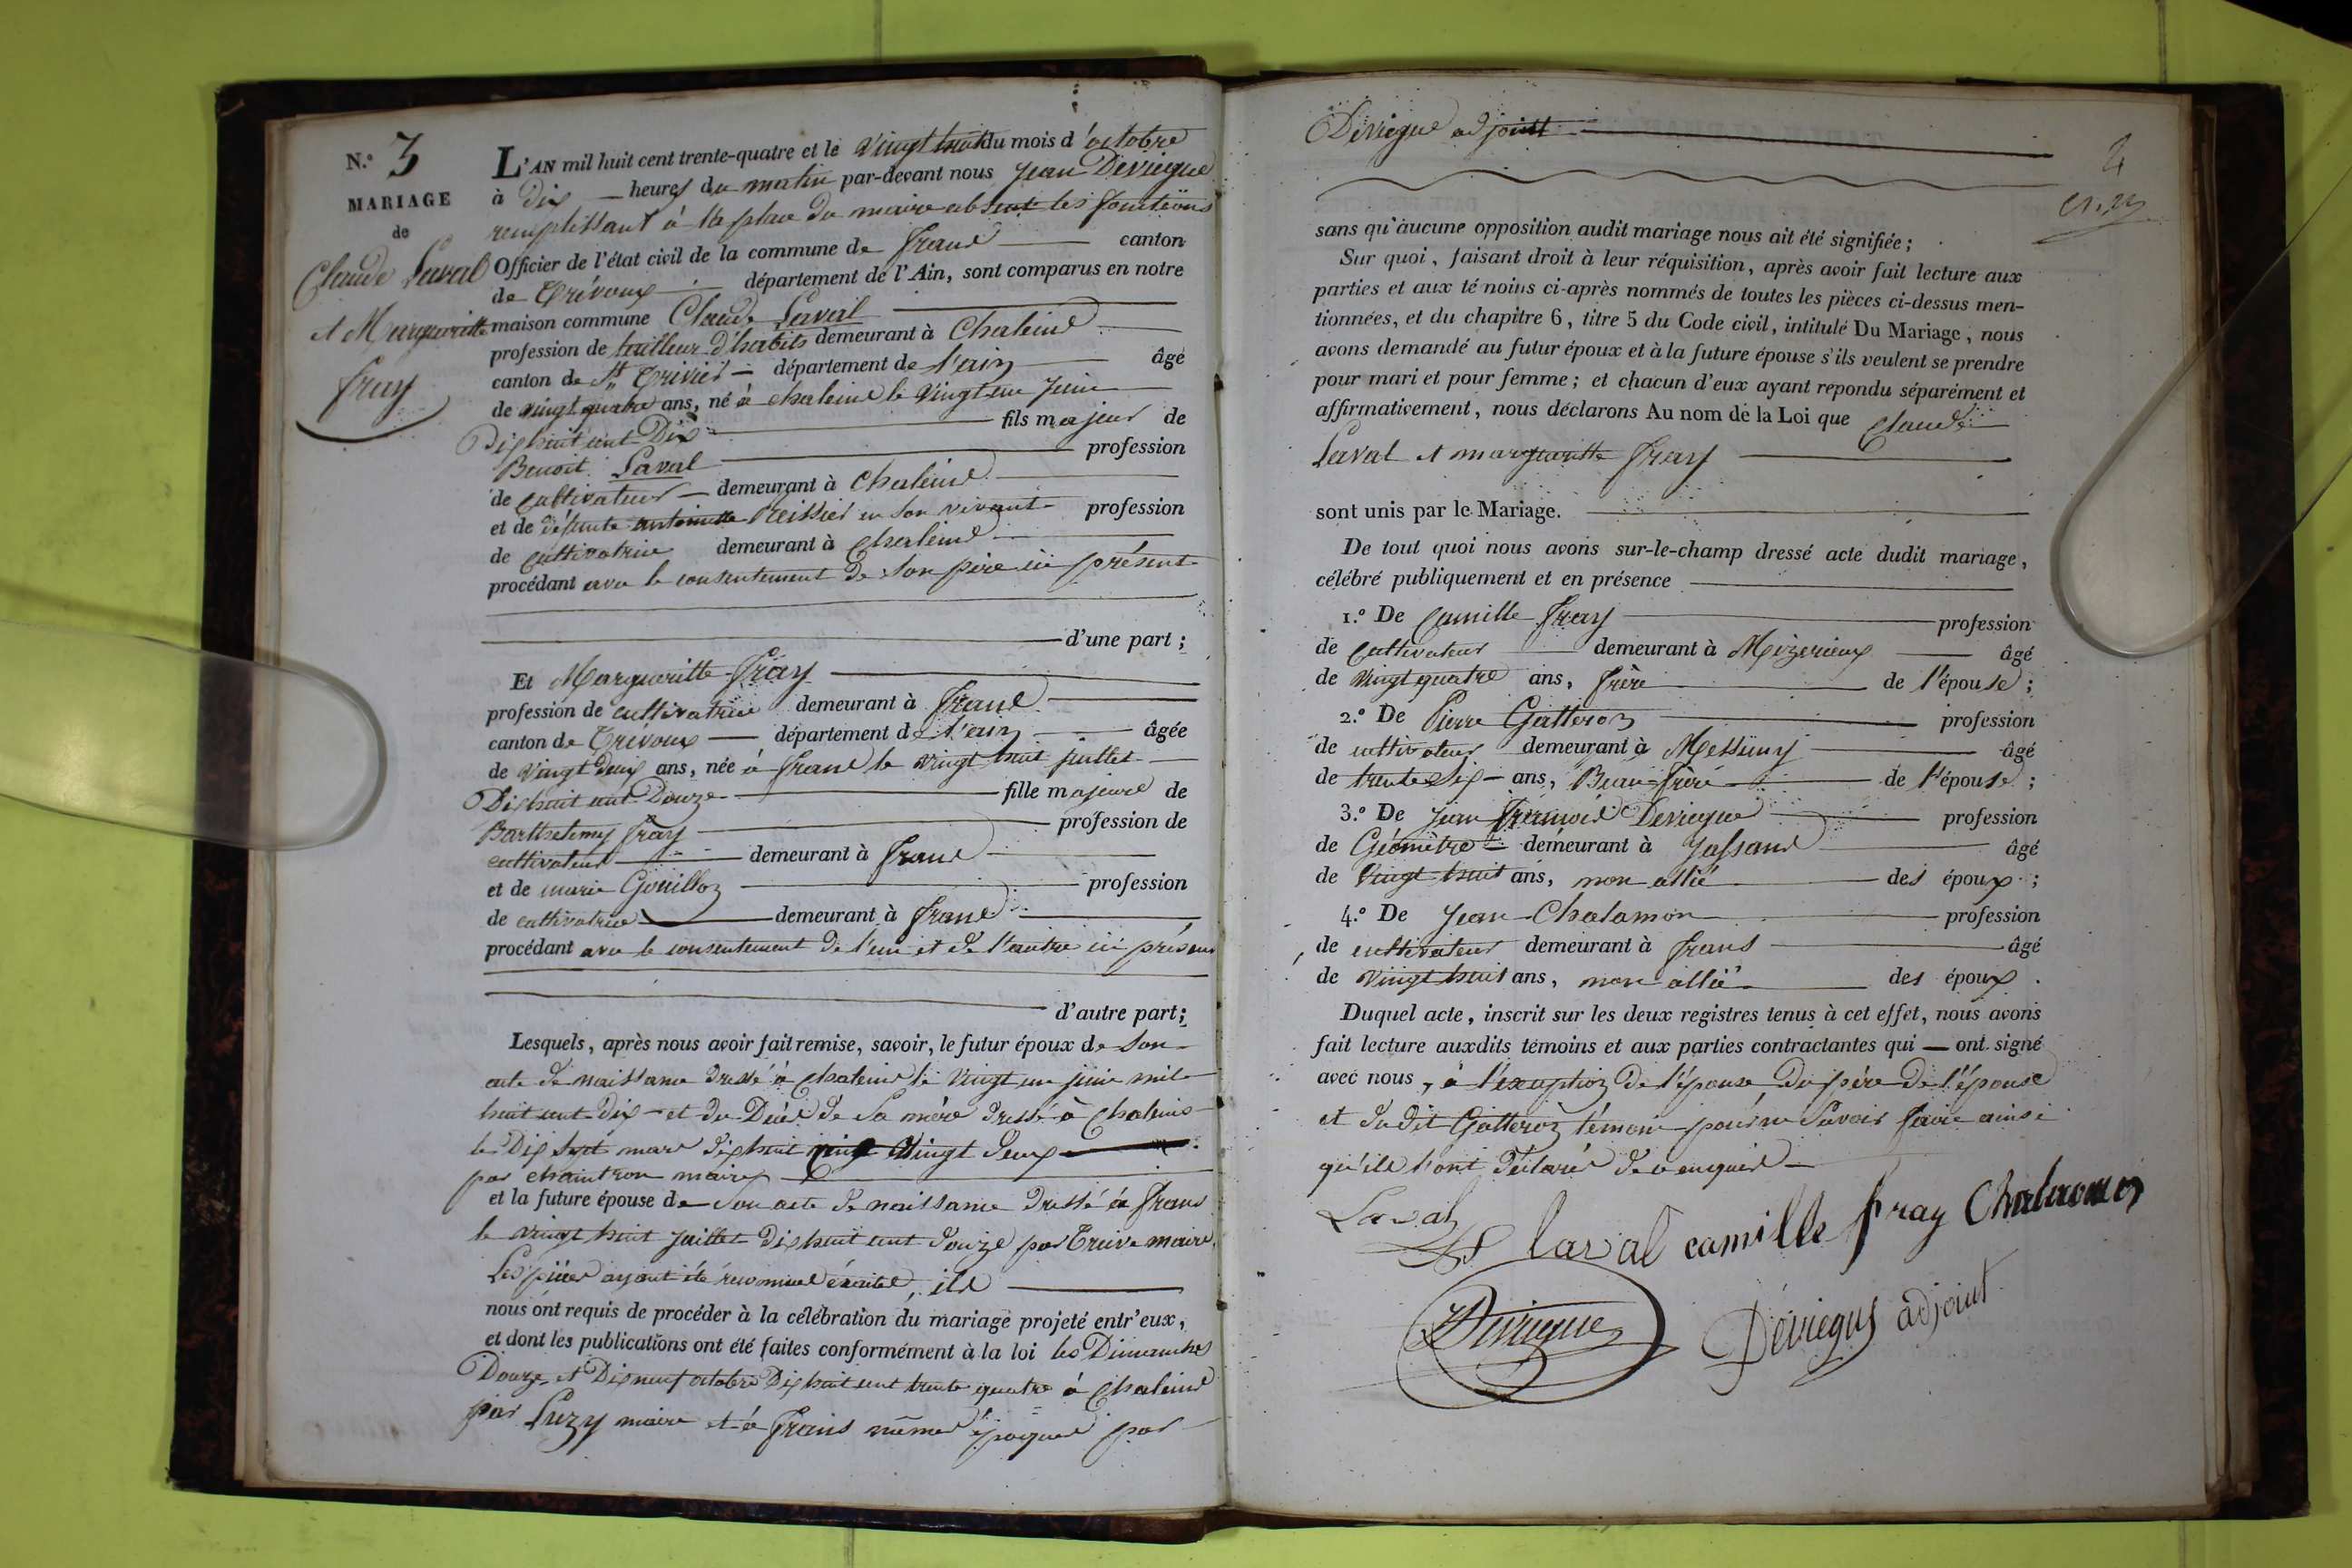 N.º 3
MARIAGE
de
Claude Laval
et Margueritte
fray
L'AN mil huit cent trente-quatre et le vingt huit du mois d'octobre
à dix heures du matin par-devant nous Jean Deviegue
remplissant à la place du maire absent les fonctions
Officier de l'état civil de la commune de frans canton
de Trévoux département de l'Ain, sont comparus en notre
maison commune Claude Laval
profession de tailleur d'habits demeurant à Chaleins
canton de St Trivier département de l'ain âgé
de vingt quatre ans, né à chaleins le vingt un juin
Dix huit cent Dix fils majeur de
Benoit Laval profession
de cultivateur demeurant à Chaleins
et de défunte antoinette en son vivant profession
de cultivatrice demeurant à chaleins
procédant avec le consentement de son père ici présent
d'une part ;
Et Margueritte fray
profession de cultivatrice demeurant à frans
canton de Trévoux département de l'ain âgée
de vingt deux ans, née à frans le vingt huit juillet
Dix huit cent Douze fille majeure de
Barthelemy fray profession de
cultivateur demeurant à frans
et de marie Gouillon profession
de cultivatrice demeurant à frans
procédant avec le consentement de l'un et de l'autre ici présens
d'autre part ;
Lesquels, après nous avoir fait remise, savoir, le futur époux de son
acte de naissance dressé à chaleins le vingt un juin mil
huit cent dix et du Décès de Sa mère dressé à Chaleins
le Dix sept mars dix huit cent vingt deux
par chaintron maire
et la future épouse de son acte de naissance dressé à frans
le vingt huit juillet dix huit cent douze par Treive maire.
Les pièces ayant été reconnues exactes, ils
nous ont requis de procéder à la célébration du mariage projeté entr'eux,
et dont les publications ont été faites conformément à la loi les Dimanches
Douze et Dix neuf octobre Dix huit cent trente quatre à Chaleins
par Luzy maire et à frans même époques par
Deviegue adjoint
2
sans qu'aucune opposition audit mariage nous ait été signifiée ;
Sur quoi, faisant droit à leur réquisition, après avoir fait lecture aux
parties et aux témoins ci-après nommés de toutes les pièces ci-dessus men-
tionnées, et du chapitre 6, titre 5 du Code civil, intitulé Du Mariage, nous
avons demandé au futur époux et à la future épouse s'ils veulent se prendre
pour mari et pour femme ; et chacun d'eux ayant repondu séparément et
affirmativement, nous déclarons Au nom de la Loi que Claude
Laval et margueritte fray
sont unis par le Mariage.
De tout quoi nous avons sur-le-champ dressé acte dudit mariage,
célébré publiquement et en présence
1.º De Camille fray profession
de cultivateur demeurant à Mizerieux âgé
de vingt quatre ans, frère de l'épouse ;
2.º De Pierre Gatteron profession
de cultivateur demeurant à Messimy âgé
de trente six ans, Beau frère de l'épouse ;
3.º De Jean françois Deviegue profession
de Géomètre demeurant à Jassans âgé
de vingt huit ans, non allié des époux ;
4.º De Jean Chalamon profession
de cultivateur demeurant à frans âgé
de vingt huit ans, non allié des époux .
Duquel acte, inscrit sur les deux registres tenus à cet effet, nous avons
fait lecture auxdits témoins et aux parties contractantes qui ont signé
avec nous, à l'exception de l'épouse du père de l'épouse
et du dit Gatteron témoin pour ne savoir faire ainsi
qu'ils l'ont déclaré de ce enquis
Laval
laval camille fray Chalamon
Deviegue
Deviegue adjoint